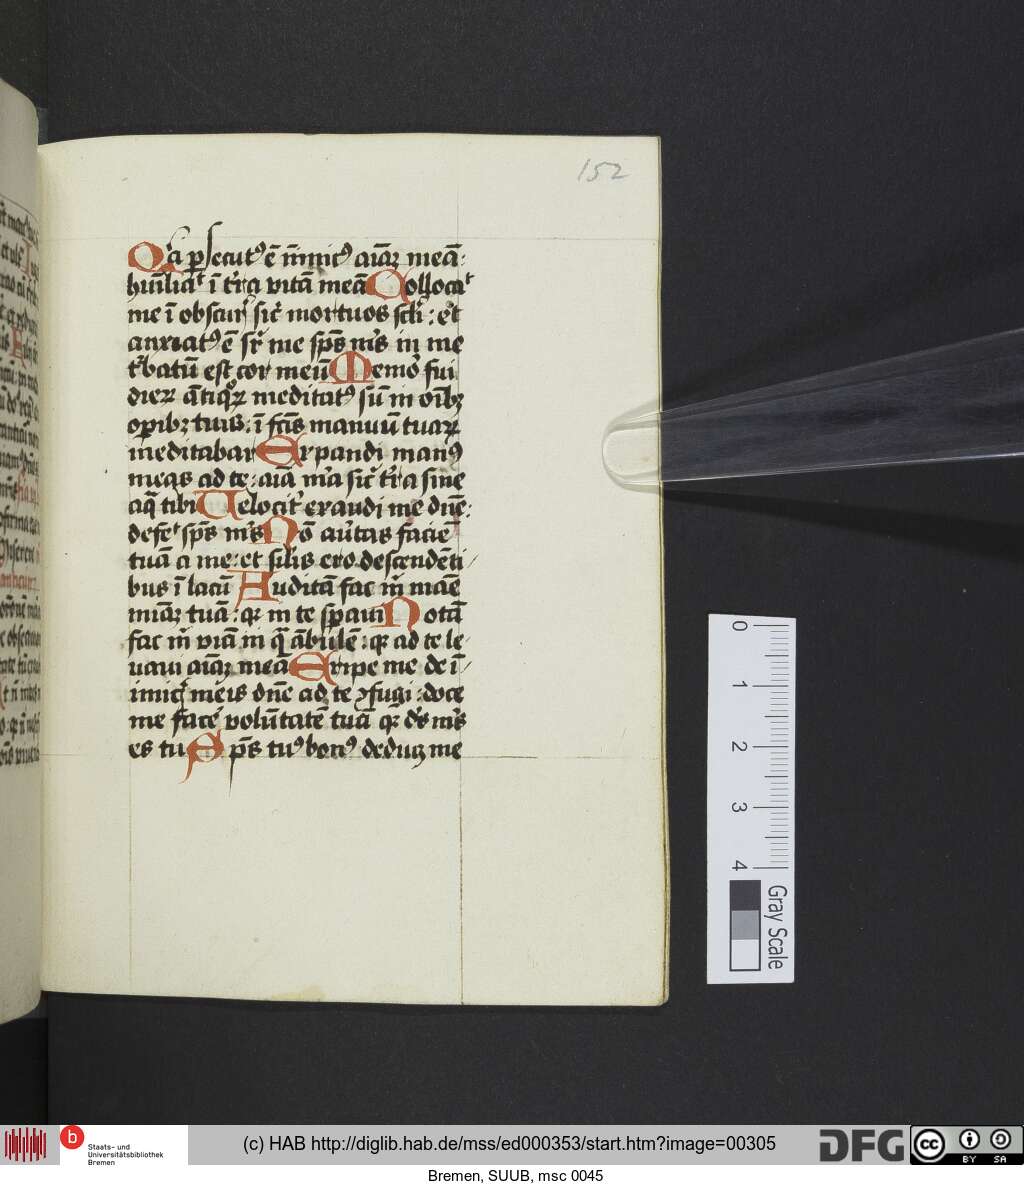 152
Qͥa ꝑsecutꝰ ē inimicꝰ aīaꝫ meā:
hūiliaͭ ī t̄ra vitā meā Collocaͭ
me ī obscurͥ sič mortuos sčli: et
anxiatꝰ ē sr̄ me sp̄s mꝰs in me
tͬbatū est cor meū Memor fui
dieꝝ ātiqͦꝝ meditatꝰ sū in oīb̄ꝫ
oꝑibꝫ tuis: ī fc̄is manuū tuaꝝ
meditabar Expandi manꝰ
meas ad te: aīa m̄a sič t̄ra sine
aq̄ tibi Velocitͬ exaudi me dn̄e:
defeͭ sp̄s mꝰs Nō au̓tas faciē
tuā a me: et siłis ero descendēti
bus ī lacū Auditā fac m̄ mane
mīaꝫ tuā: qꝛ in te sꝑaui Notā
fac m̄ viā in q̄ ābulē: qꝛ ad te le
uaui aīaꝫ meā Eripe me de ī
imicͥ meis dn̄e ad te ꝯfugi: doce
me faceͬ volūtatē tuā qꝛ ds̄ mꝰs
es tu Sp̄s tuꝰ bonꝰ deducꝫ me
0
1
2
3
4
Gray Scale
b
Staats- und
Universitätsbibliothek
Bremen
(c) HAB http://diglib.hab.de/mss/ed000353/start.htm?image=00305
DFG
cc
BY SA
Bremen, SUUB, msc 0045